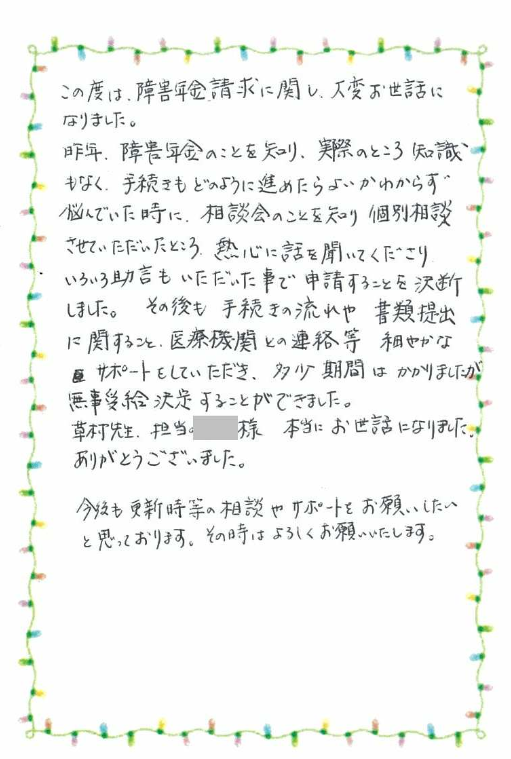 この度は、障害年金請求に関し、大変お世話に
なりました。
昨年、障害年金のことを知り、実際のところ知識
もなく、手続きもどのように進めたらよいかわからず
悩んでいた時に、相談会のことを知り個別相談
させていただいたところ、熱心に話を聞いてくださり
いろいろ助言もいただいた事で申請することを決断
しました。その後も手続きの流れや書類提出
に関すること、医療機関との連絡等細やかな
サポートをしていただき、多少期間はかかりましたが
無事受給決定することができました。
草村先生、担当の様 本当にお世話になりました。
ありがとうございました。
今後も更新時等の相談やサポートをお願いしたい
と思っております。その時はよろしくお願いいたします。